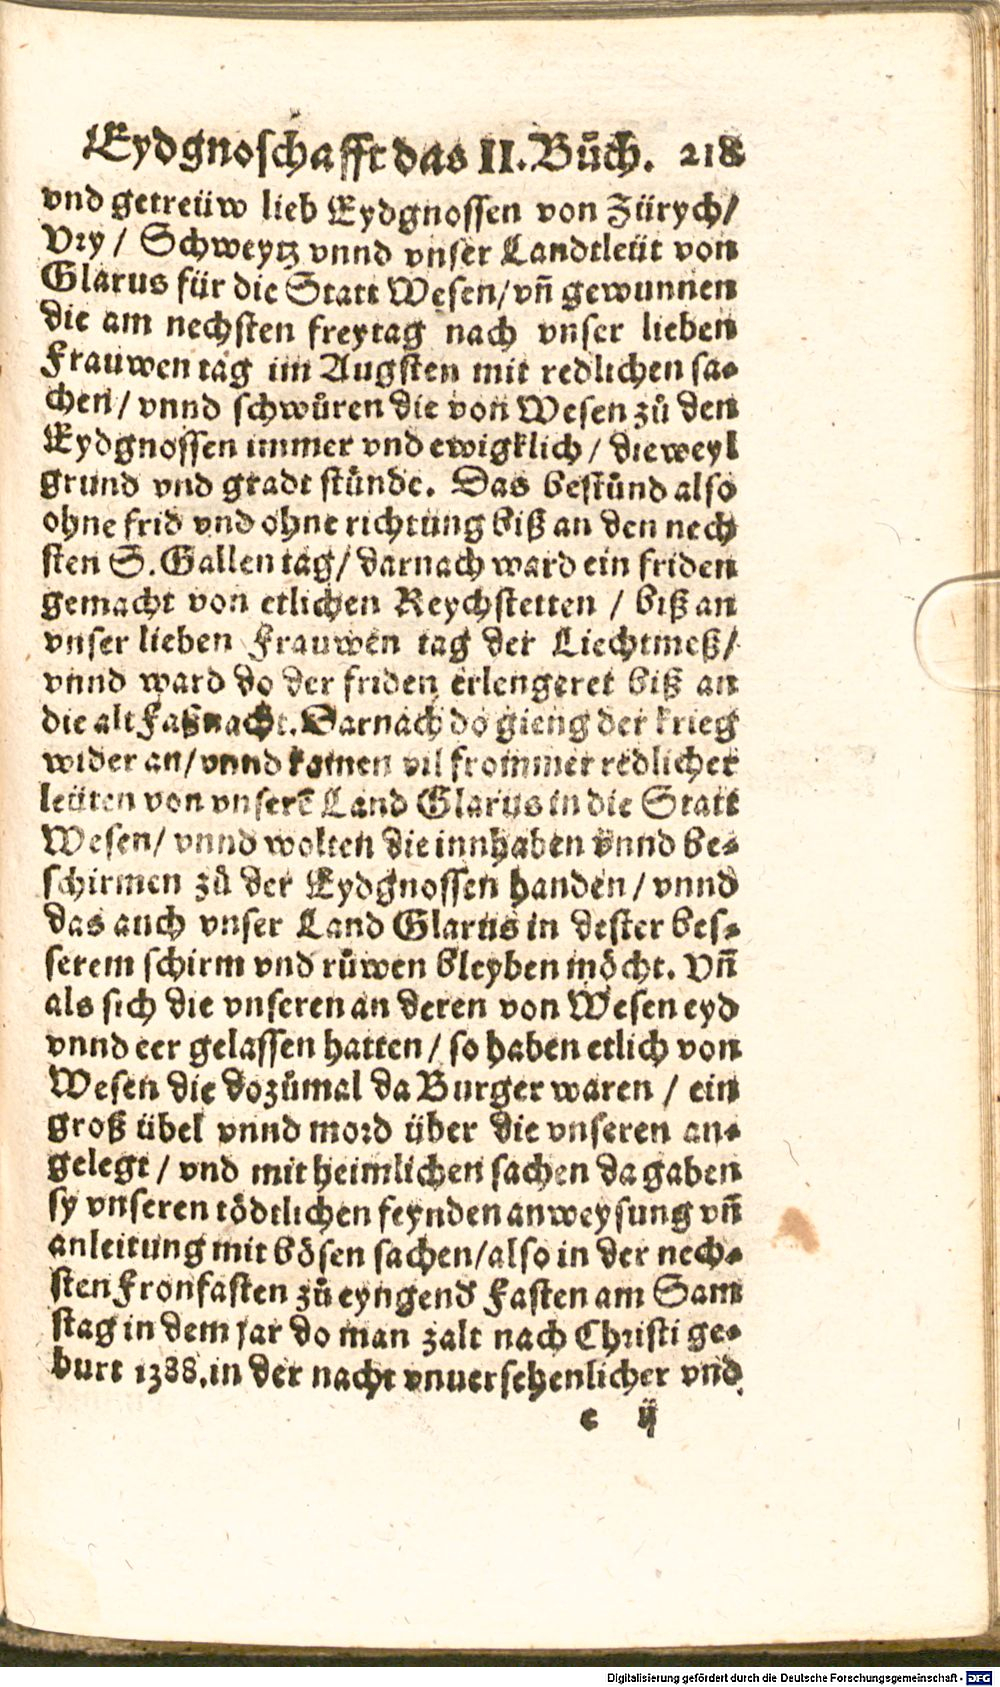 Eydgnoschafft das II. Bůch. 218
vnd getreüw lieb Eydgnossen von Zürych/
Vry / Schweytz vnnd vnser Landtleüt von
Glarus für die Statt Wesen/vñ gewunnen
die am nechsten freytag nach vnser lieben
Frauwen tag im Augsten mit redlichen sa-
chen/ vnnd schwůren die von Wesen zů den
Eydgnossen immer vnd ewigklich / die weyl
grund vnd gradt stůnde. Das bestůnd also
ohne frid vnd ohne richtung biß an den nech
sten S. Gallen tag/ darnach ward ein friden
gemacht von etlichen Reychstetten / biß an
vnser lieben Frauwen tag der Liechtmeß/
vnnd ward do der friden erlengeret biß an
die alt Faßnacht. Darnach do gieng der krieg
wider an/ vnnd kamen vil frommer redlicher
leüten von vnserẽ Land Glarus in die Statt
Wesen/ vnnd wolten die innhaben vnnd be-
schirmen zů der Eydgnossen handen / vnnd
das auch vnser Land Glarus in dester bes-
serem schirm vnd růwen bleyben möcht. Vñ
als sich die vnseren an deren von Wesen eyd
vnnd eer gelassen hatten / so haben etlich von
Wesen die dozůmal da Burger waren / ein
groß übel vnnd mord über die vnseren an-
gelegt / vnd mit heimlichen sachen da gaben
sy vnseren tödtlichen feynden anweysung vñ
anleitung mit bösen sachen/also in der nech-
sten Fronfasten zů eyngend Fasten am Sam
stag in dem jar do man zalt nach Christi ge-
burt 1388. in der nacht vnuersehenlicher vnd
c ij
Digitalisierung gefördert durch die Deutsche Forschungsgemeinschaft - DFG